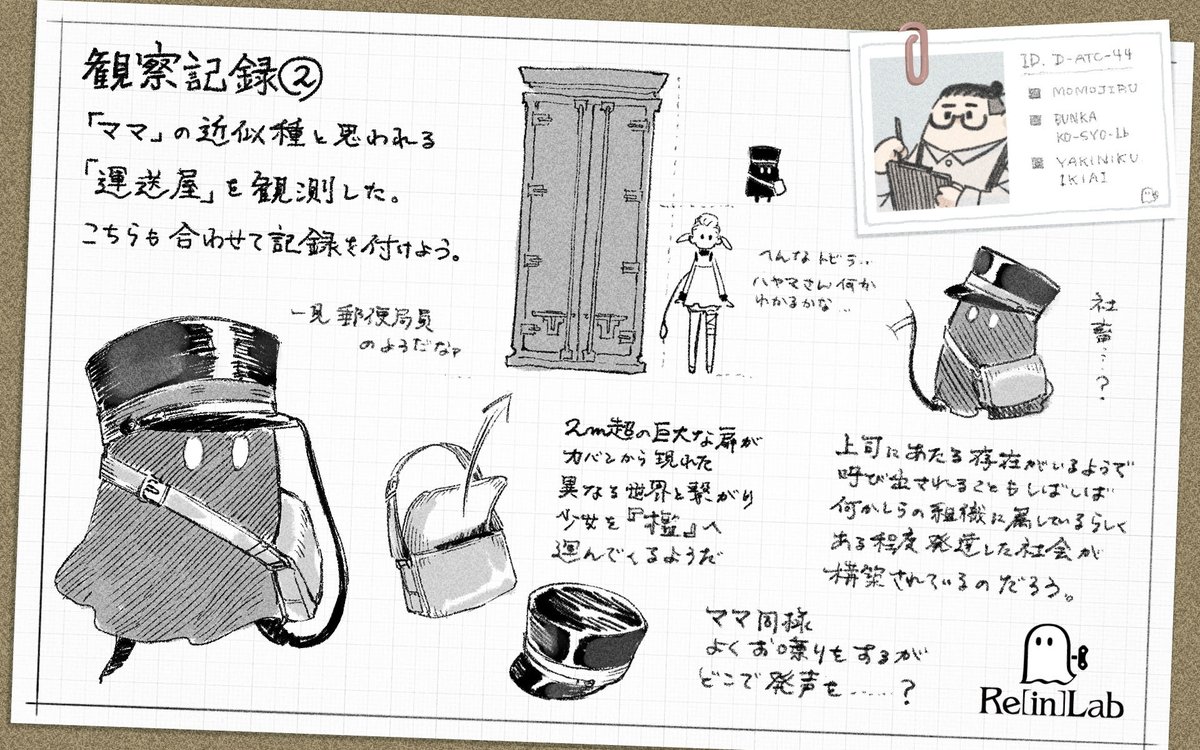 観察記録②
「ママ」の近似種と思われる
「運送屋」を観測した。
こちらも合わせて記録を付けよう。
ID. D-ATC-44
MOMOJIRU
BUNKA
KO-SYO-16
YAKINIKU
IKIAI
へんなトビラ…
ハヤマさん何か
わかるかな…
一見郵便局員
のようだな
社畜…?
2m超の巨大な扉が
カバンから現れた
異なる世界と繋がり
少女を『檻』へ
運んでくるようだ
上司にあたる存在がいるようで
呼び出されることもしばしば
何かしらの組織に属しているらしく
ある程度発達した社会が
構築されているのだろう。
ママ同様
よくお喋りをするが
どこで発声を……?
Re[in]Lab